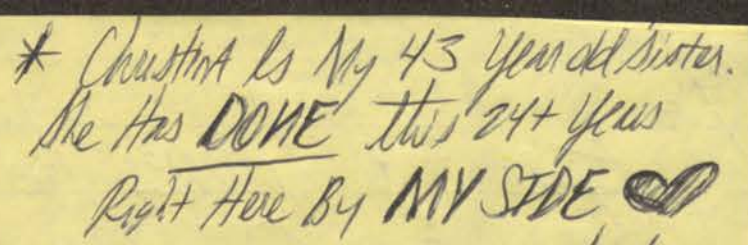 * Christina Is My 43 Year old sister.
She Has DONE this 24+ Years
Right Here By MY SIDE